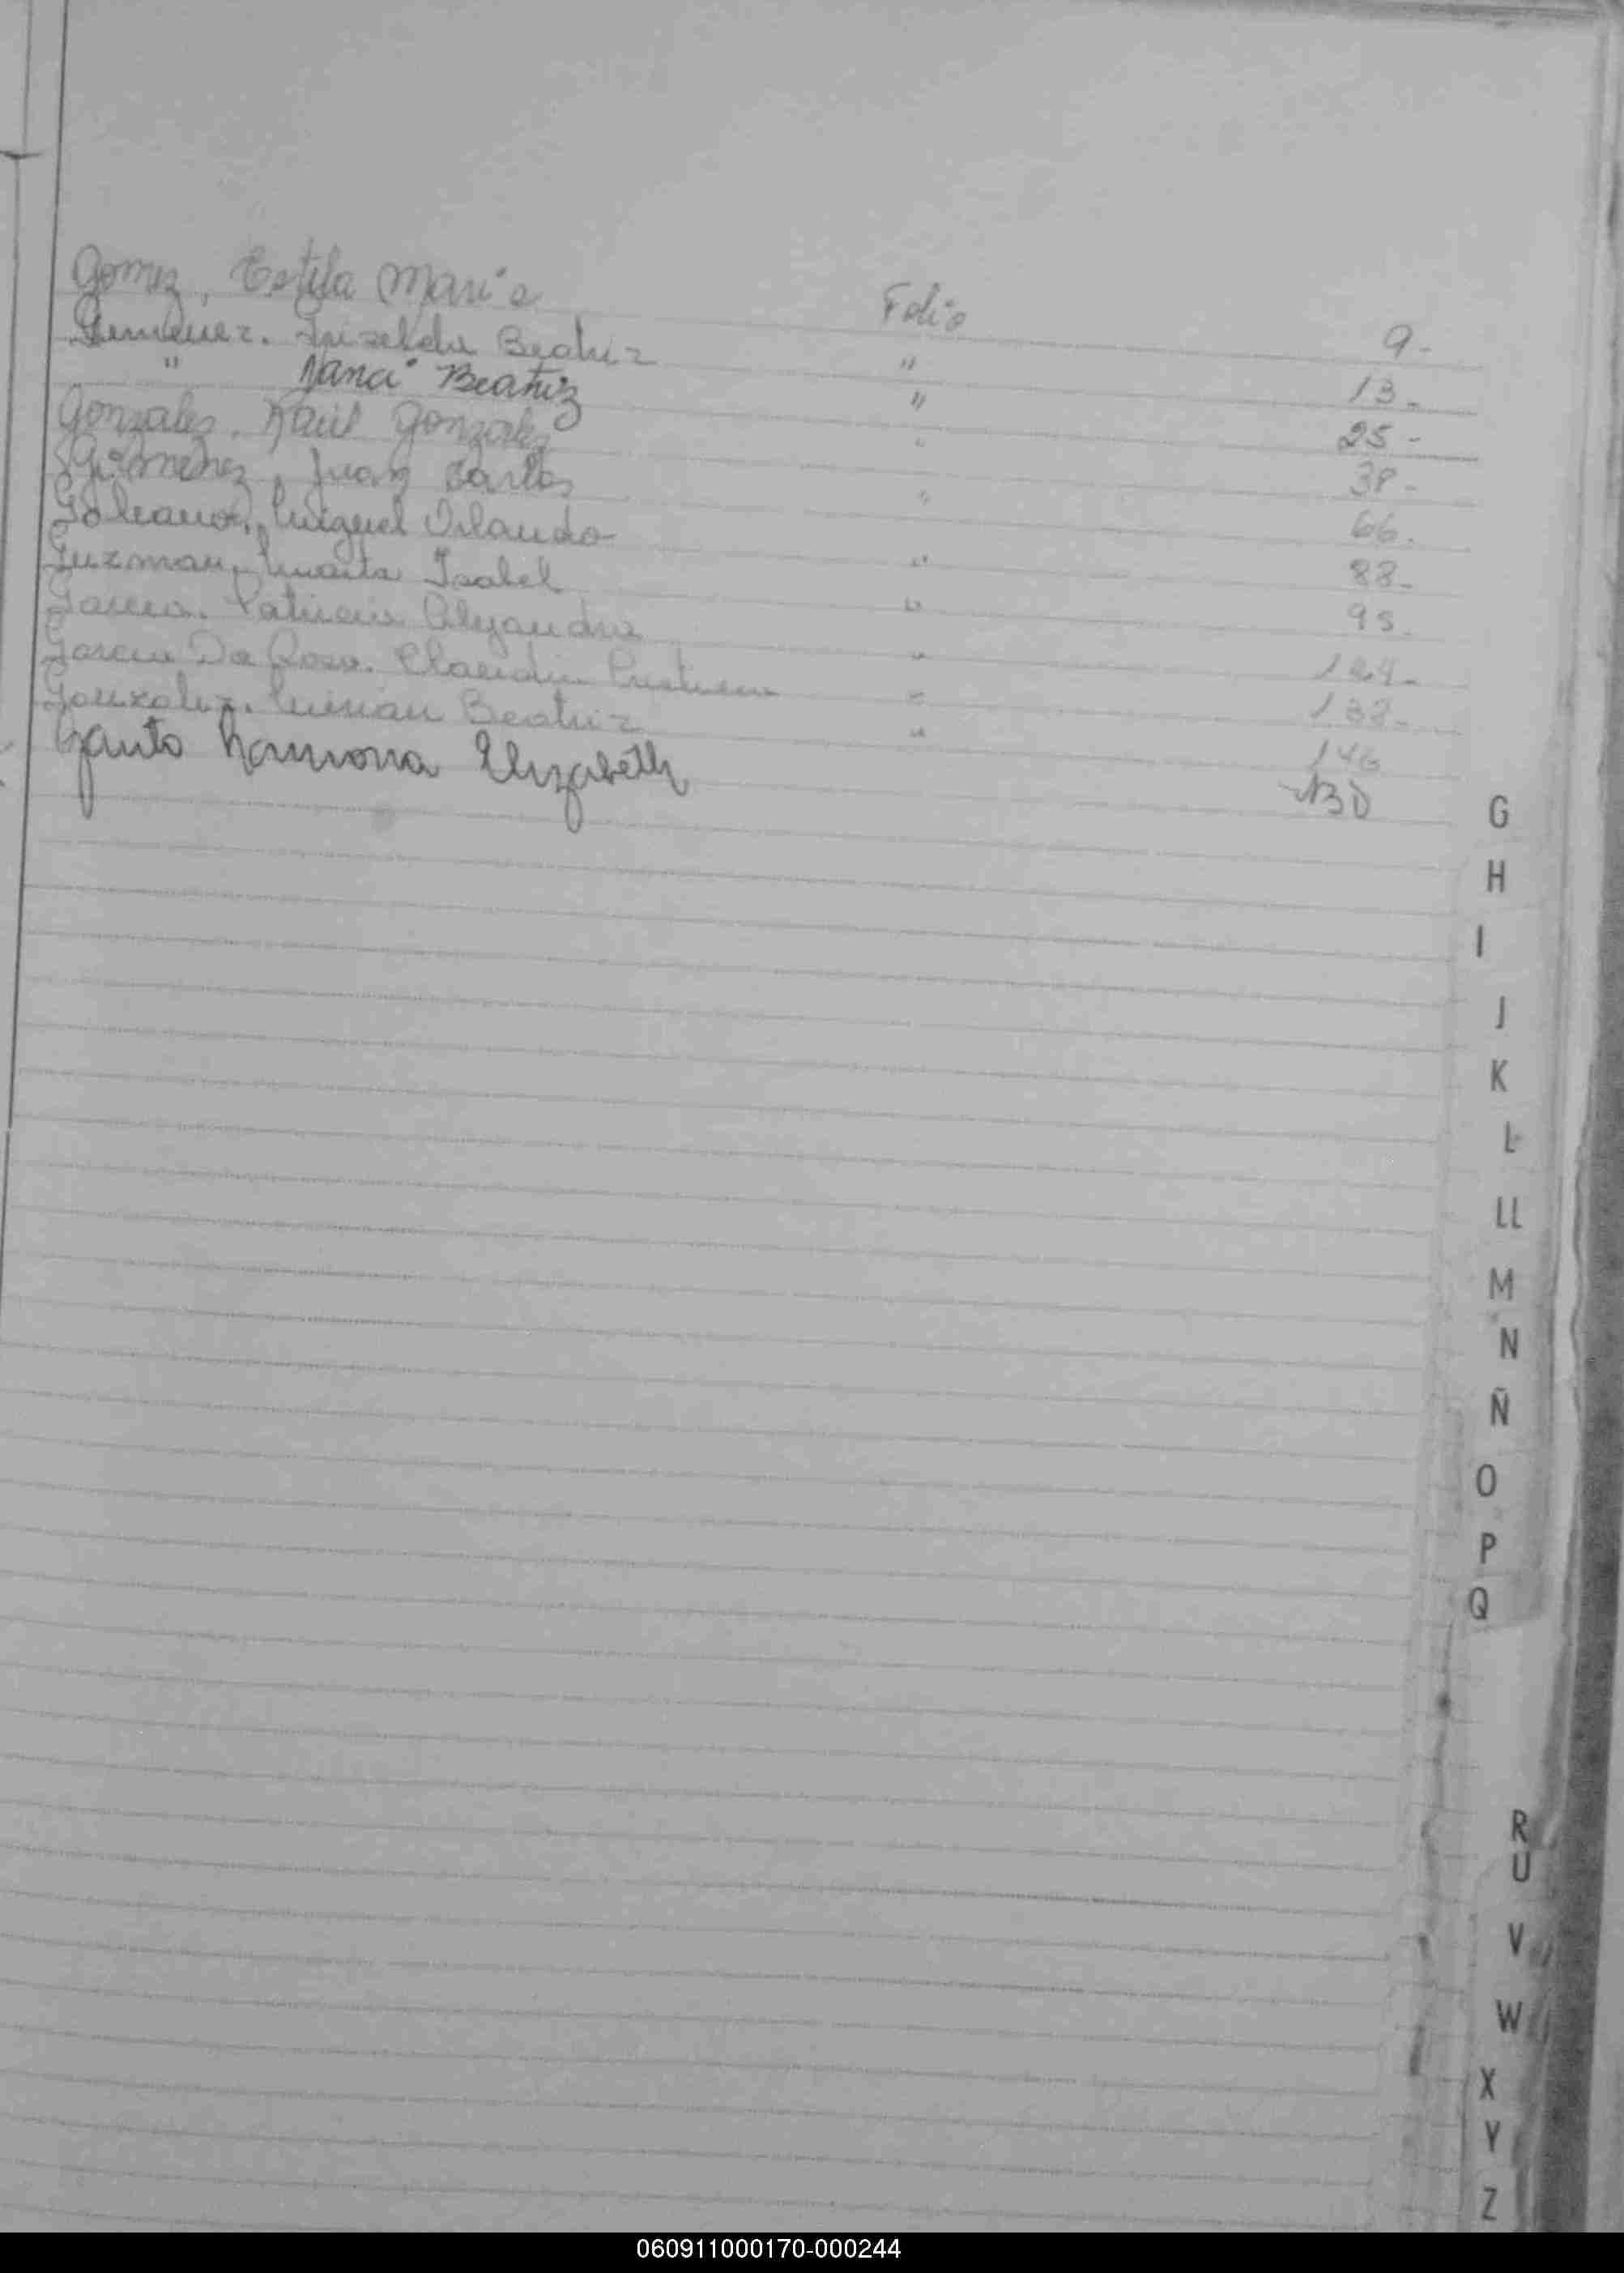 Gomez, Estela Maria Folio 9-
Gimenez. Griselda Beatriz " 13-
" Nanci Beatriz " 25-
Gonzalez, Raul Gonzalez " 38-
Gimenez, Juan Carlos " 66.
Galeano, Miguel Orlando " 88-
Guzman, Marta Isabel " 95.
Garcia. Patricia Alejandra " 124-
Garcia Da Rosa. Claudia " 138-
Gonzalez. Mirian Beatriz " 146
Gauto Ramona Elizabeth 130
G
H
I
J
K
L
LL
M
N
Ñ
O
P
Q
R
U
V
W
X
Y
Z
060911000170-000244